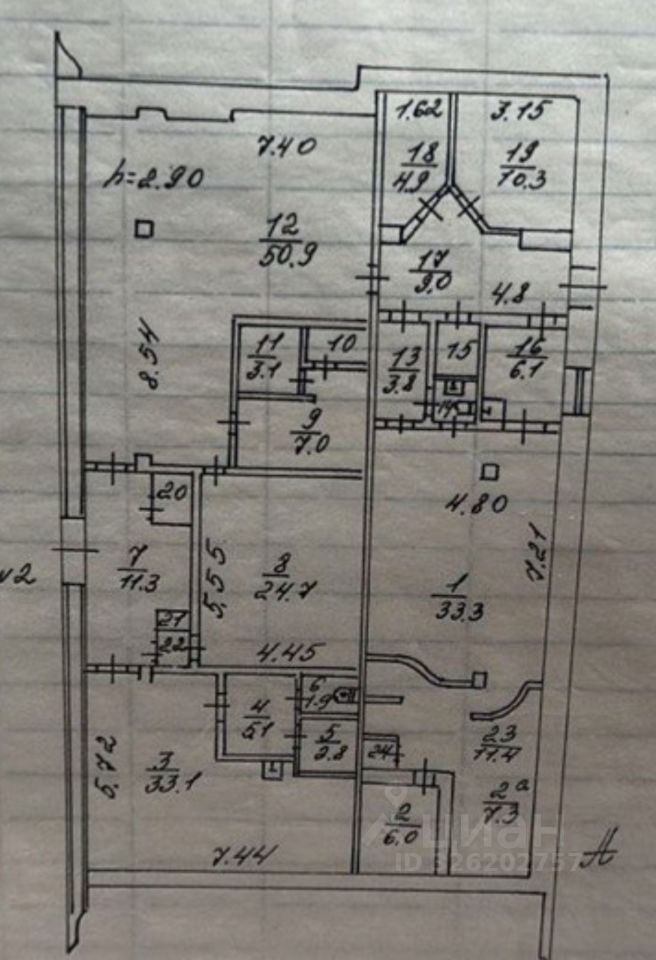 1.62
3.15
7.40
18
4.9
19
10.3
h=2.90
12
50.9
17
9.0
4.8
8.54
11
3.1
10
13
3.8
15
16
6.1
14
9
7.0
20
4.80
7.21
7
11.3
5.55
8
24.7
1
33.3
21
22
4.45
6
1.9
4
5.1
5
2.8
24
23
11.4
5.72
3
33.1
2
6.0
2а
7.3
7.44
А
циан
ID 326202757